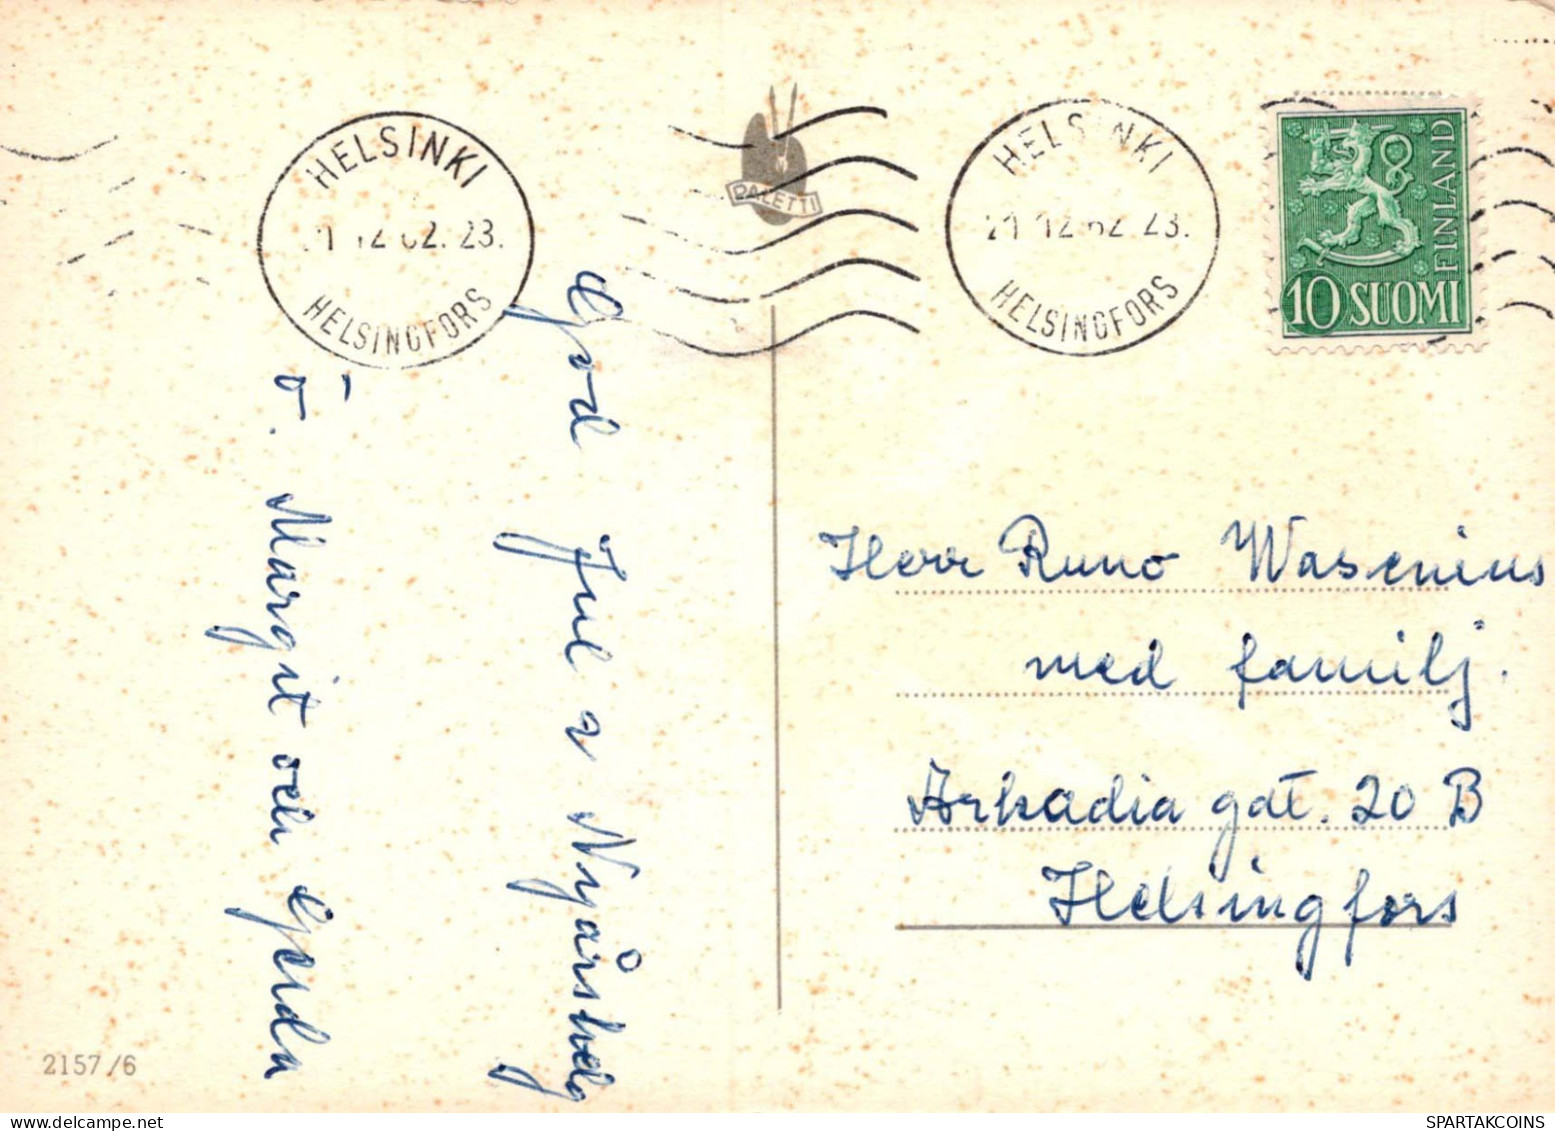 HELSINKI
12 62. 23.
HELSINGFORS
PALETTI
HELSINKI
21 12 62 23.
HELSINGFORS
FINLAND
10 SUOMI
God Jul o Nyårshelg
ö. Margit och Gerda
Herr Runo Wasenius
med familj.
Arkadia gat. 20 B
Helsingfors
2157/6
SPARTAKCOINS